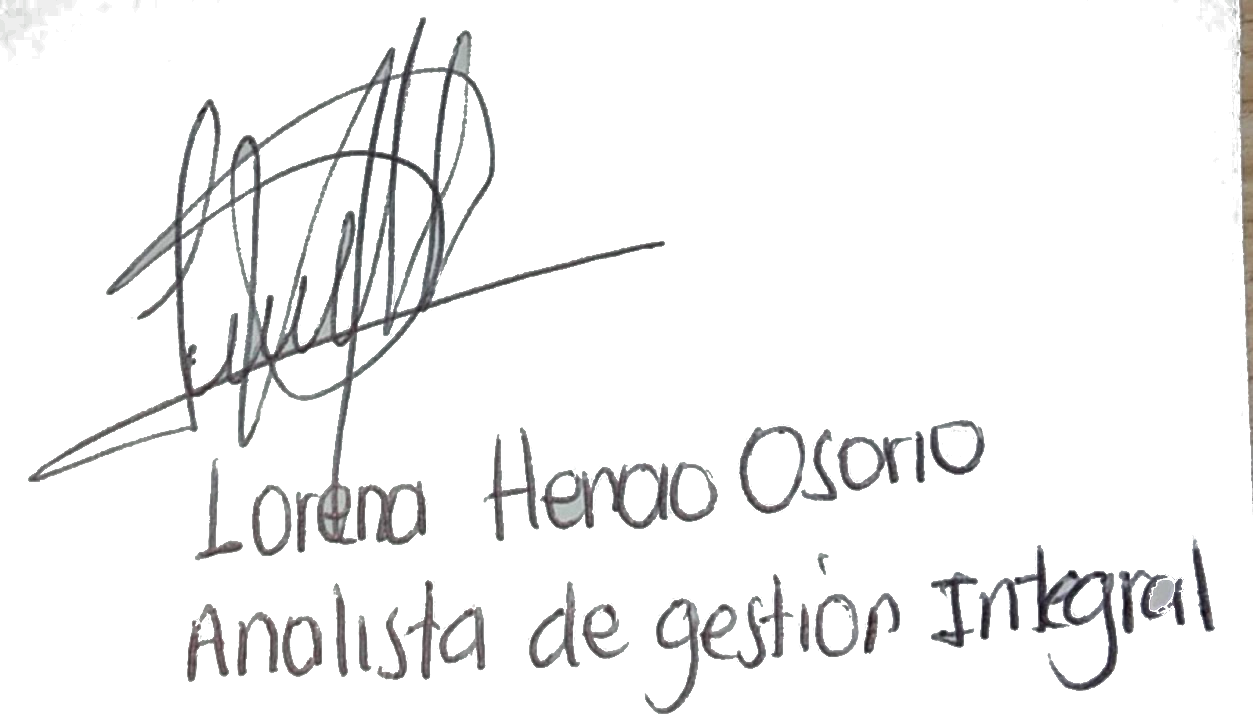 Lorena Henao Osorio
Analista de gestión Integral